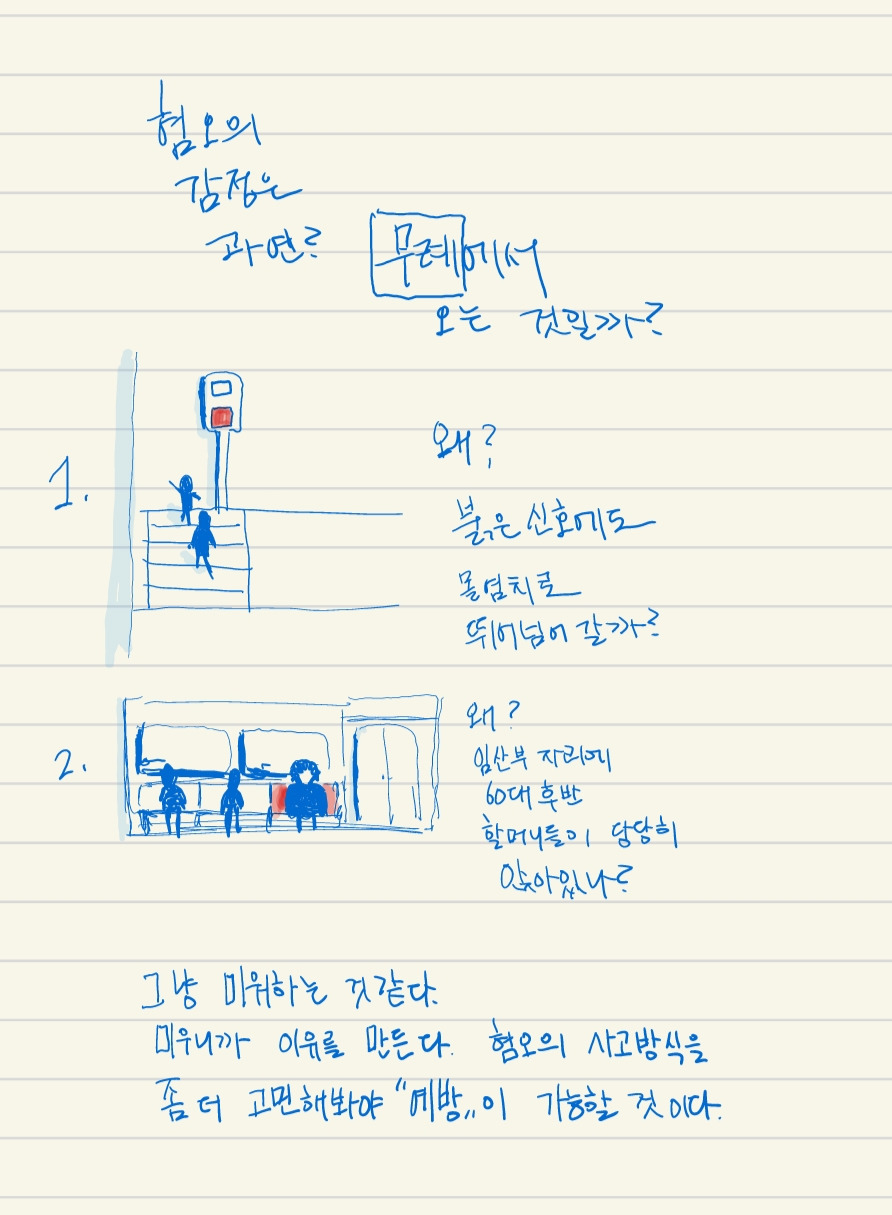 혐오의
감정은
과연? 무례에서
오는 것일까?
1.
왜?
붉은 신호에도
몰염치로
뛰어넘어 갈까?
2.
왜?
임산부 자리에
60대 후반
할머니들이 당당히
앉아있나?
그냥 미워하는 것같다.
미우니까 이유를 만든다. 혐오의 사고방식을
좀 더 고민해봐야 "예방"이 가능할 것이다.